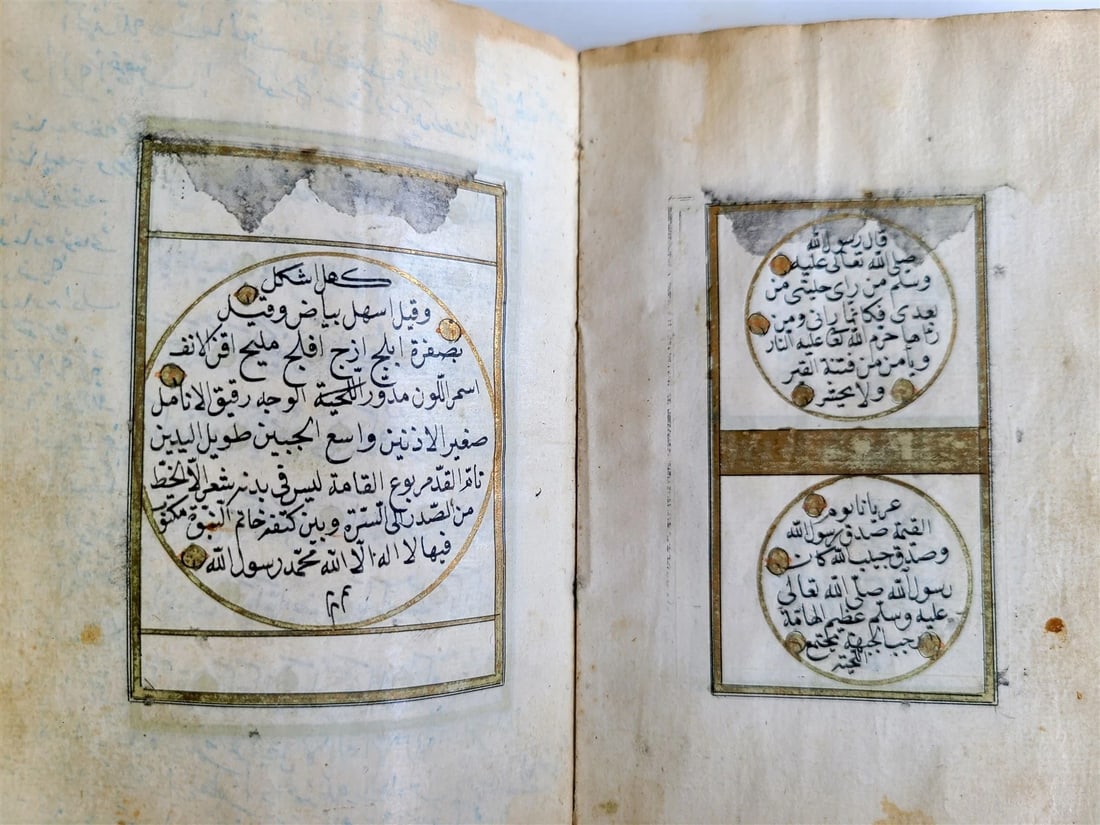 قال رسول الله
صلى الله تعالى عليه
وسلم من رأى حليتى من
بعدى فكانما رانى ومن
راها حرم الله تعا عليه النار
ويأمن من فتنة القبر
ولا يحشر
عريانا يوم
القيمة صدق رسول الله
وصدق حبيب الله كان
رسول الله صلى الله تعالى
عليه وسلم عظيم الهامة
رحب الجبهة مجتمع
اللحيتة
كهل اشكل
وقيل اسهل بياض وقيل
بصفرة ابلج ازج افلج مليح اقنى الانف
اسمر اللون مدور اللحية الوجه رقيق الانامل
صغير الاذنين واسع الجبين طويل اليدين
تام القد مربوع القامة ليس فى بدنه شعر الا الخط
من الصدر الى السترة وبين كتفه خاتم النبوة مكتو
فيها لا اله الا الله محمد رسول الله